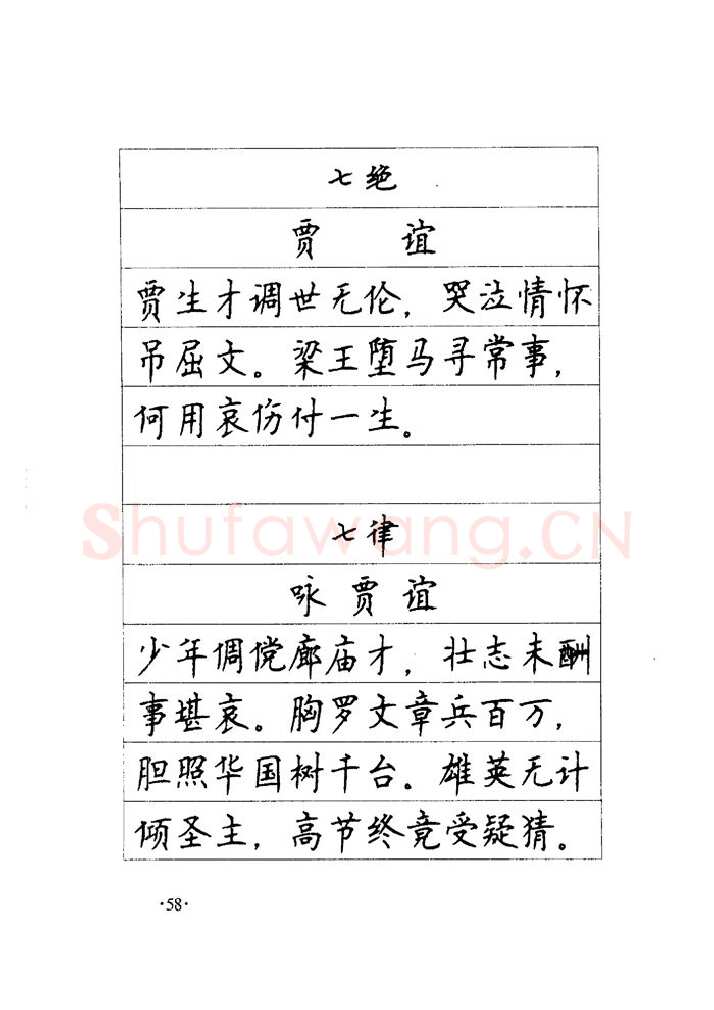 七绝
贾 谊
贾生才调世无伦，哭泣情怀
吊屈文。梁王堕马寻常事，
何用哀伤付一生。
Shufawang.CN
七律
咏贾谊
少年倜傥廊庙才，壮志未酬
事堪哀。胸罗文章兵百万，
胆照华国树千台。雄英无计
倾圣主，高节终竟受疑猜。
·58·